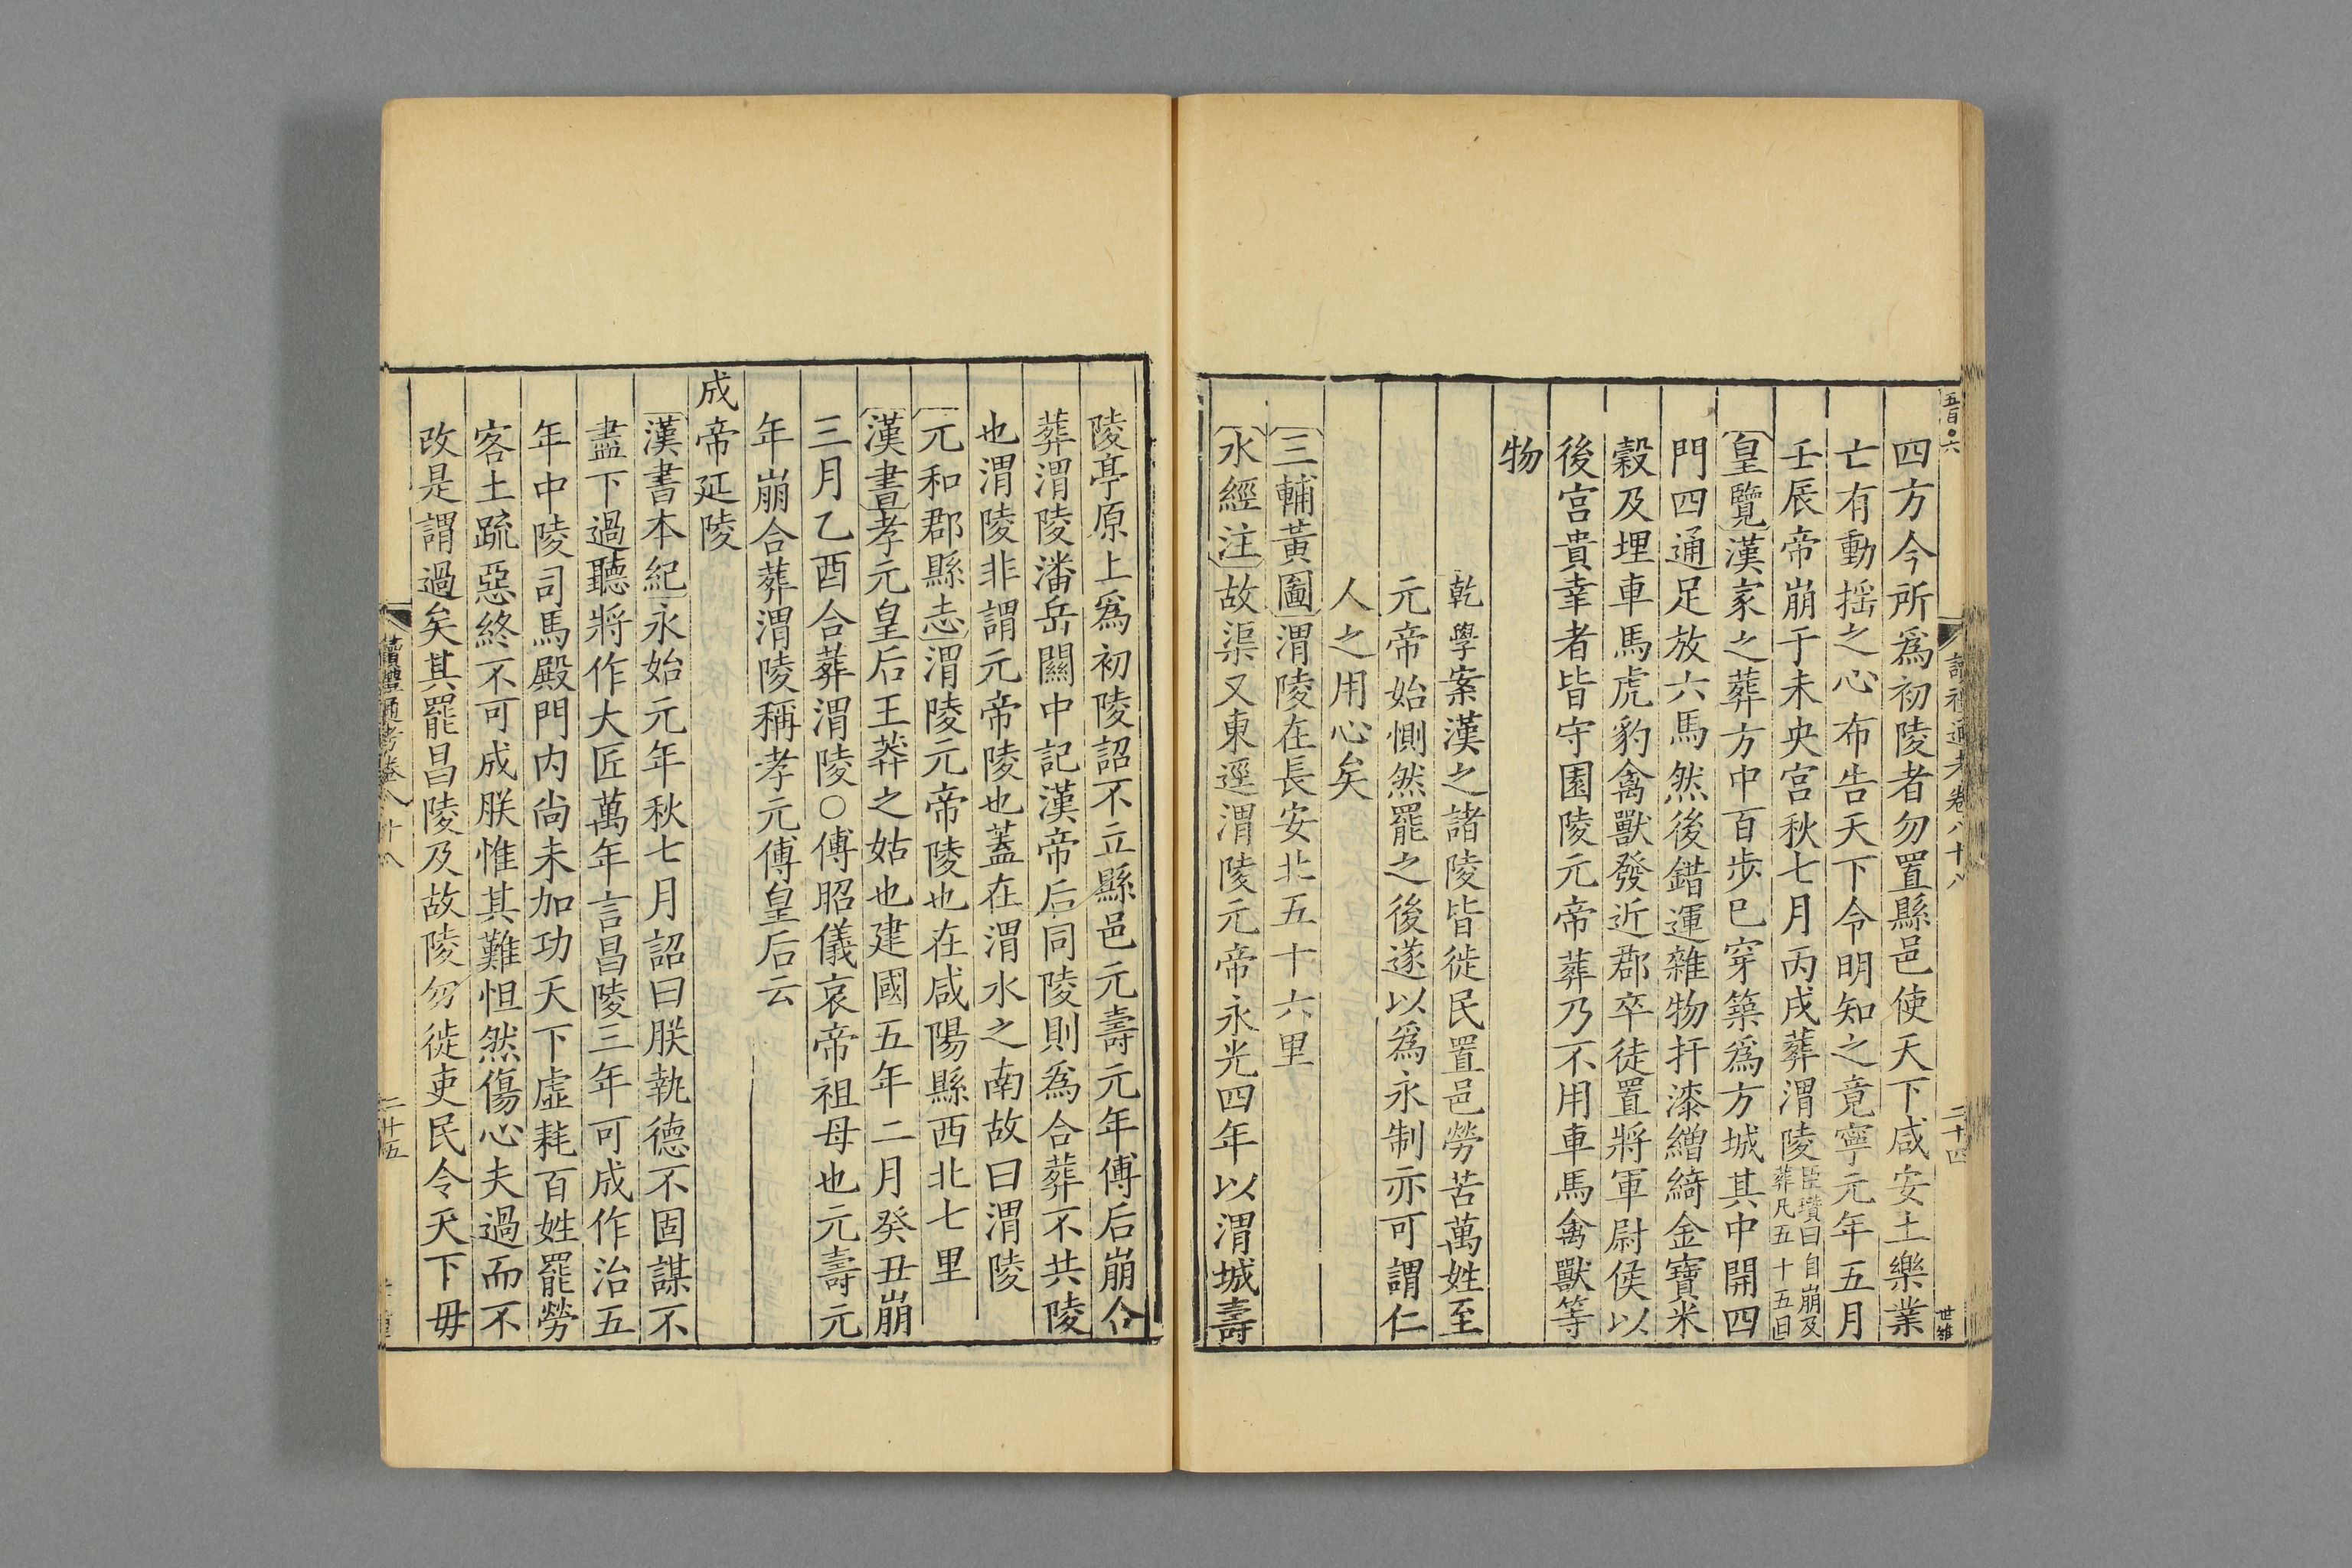 五百〇六
讀禮通考卷八十八
二十四
世雏
四方今所爲初陵者勿置縣邑使天下咸安土樂業
亡有動揺之心布告天下令明知之竟寧元年五月
壬辰帝崩于未央宮秋七月丙戌葬渭陵臣瓚曰自崩及葬凡五十五日
皇覽漢家之葬方中百步巳穿築爲方城其中開四
門四通足放六馬然後錯運雜物扞漆繒綺金寶米
穀及埋車馬虎豹禽獸發近郡卒徒置將軍尉侯以
後宮貴幸者皆守園陵元帝葬乃不用車馬禽獸等
物
乾學案漢之諸陵皆徙民置邑勞苦萬姓至
元帝始惻然罷之後遂以爲永制亦可謂仁
人之用心矣
三輔黃圖渭陵在長安北五十六里
水經注故渠又東逕渭陵元帝永光四年以渭城壽
陵亭原上爲初陵詔不立縣邑元壽元年傅后崩合
葬渭陵潘岳關中記漢帝后同陵則爲合葬不共陵
也渭陵非謂元帝陵也蓋在渭水之南故曰渭陵
元和郡縣志渭陵元帝陵也在咸陽縣西北七里
漢書孝元皇后王莽之姑也建國五年二月癸丑崩
三月乙酉合葬渭陵〇傅昭儀哀帝祖母也元壽元
年崩合葬渭陵稱孝元傅皇后云
成帝延陵
漢書本紀永始元年秋七月詔曰朕執德不固謀不
盡下過聽將作大匠萬年言昌陵三年可成作治五
年中陵司馬殿門内尚未加功天下虛耗百姓罷勞
客土疏惡終不可成朕惟其難怛然傷心夫過而不
改是謂過矣其罷昌陵及故陵勿徙吏民令天下毋
讀禮通考卷八十八
二十五